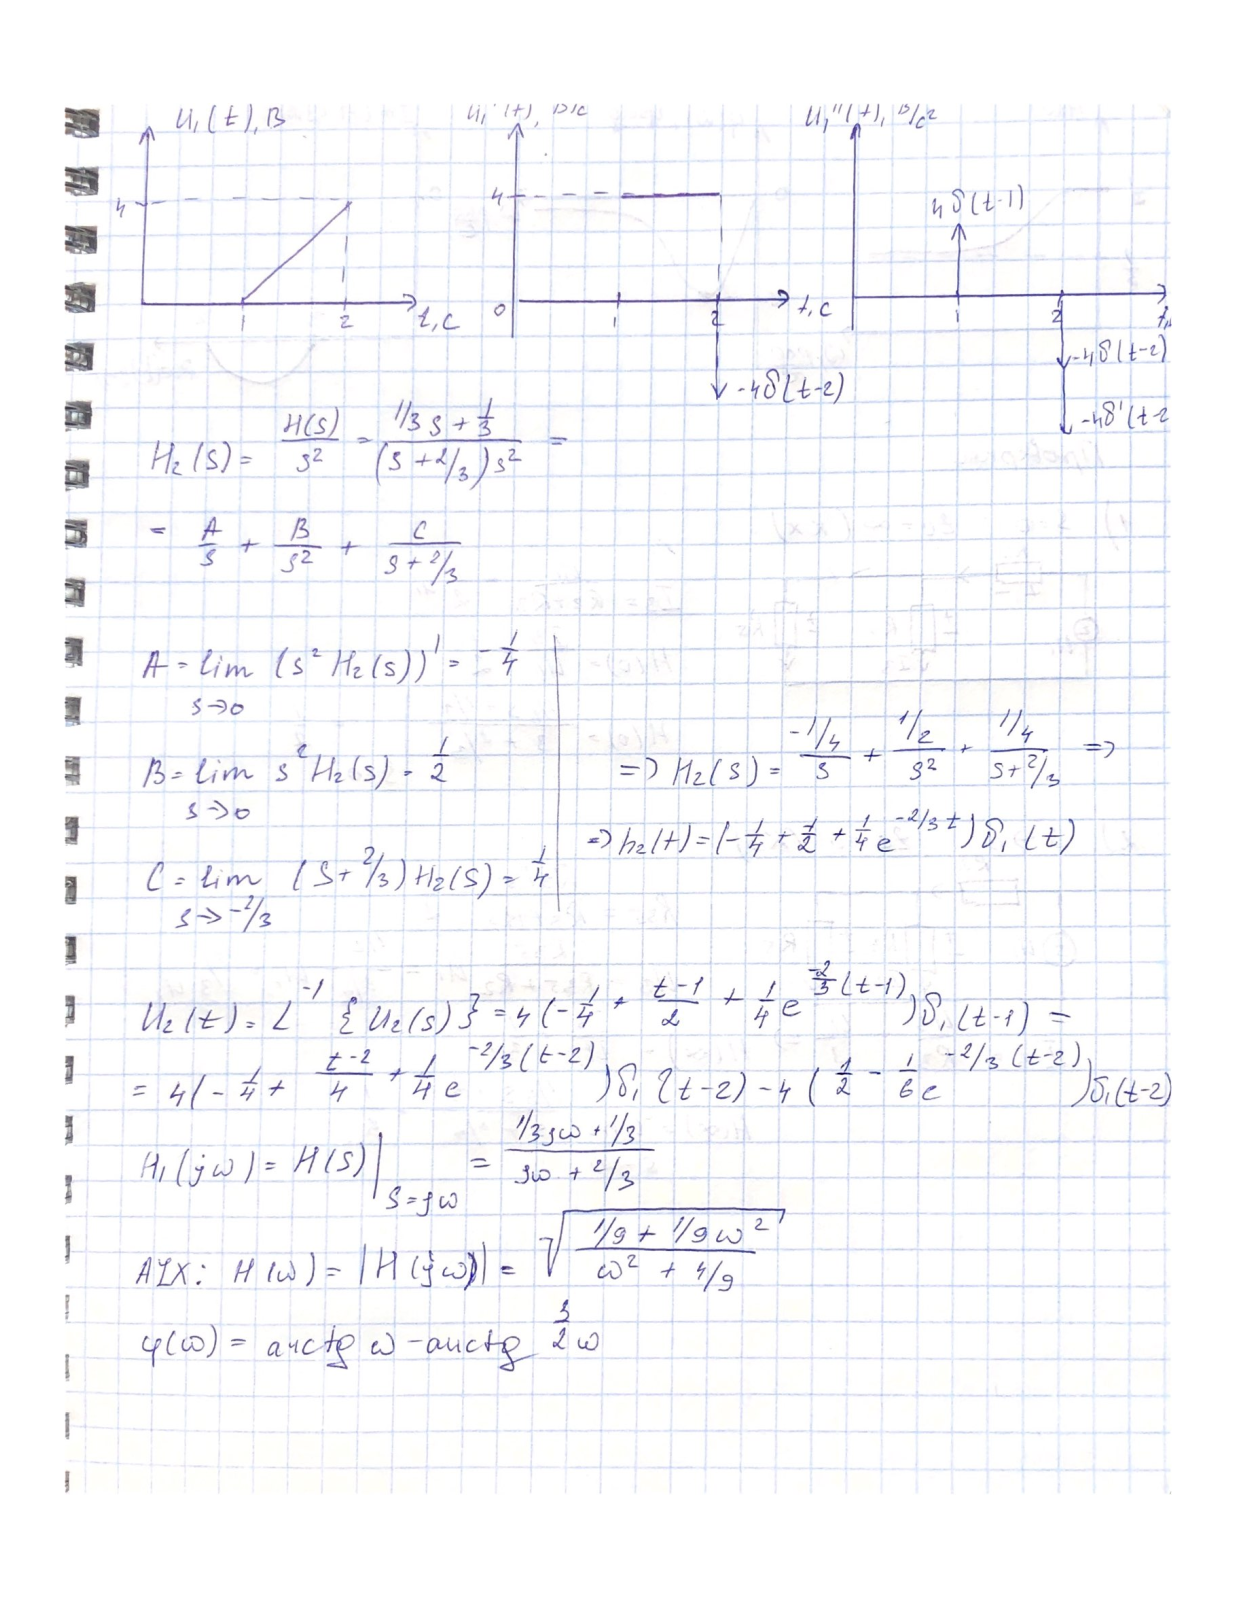 U₁(t), В
U₁'(t), В/с
U₁''(t), В/с²
4
1
2
t, с
4
0
1
2
t, с
-4δ(t-2)
4δ(t-1)
1
2
t,
-4δ(t-2)
-4δ'(t-2
H₂(s) = H(s)/s² = (1/3 s + 1/3)/((s + 2/3)s²) =
= A/s + B/s² + C/(s + 2/3)
A = lim s→0 (s² H₂(s))' = -1/4
B = lim s→0 s² H₂(s) = 1/2
C = lim s→-2/3 (s + 2/3) H₂(s) = 1/4
=> H₂(s) = (-1/4)/s + (1/2)/s² + (1/4)/(s + 2/3) =>
=> h₂(t) = (-1/4 + 1/2 + 1/4 e^(-2/3 t)) δ₁(t)
U₂(t) = L⁻¹{U₂(s)} = 4(-1/4 + (t-1)/2 + 1/4 e^(-2/3 (t-1))) δ₁(t-1) =
= 4(-1/4 + (t-2)/4 + 1/4 e^(-2/3 (t-2))) δ₁(t-2) - 4(1/2 - 1/6 e^(-2/3 (t-2))) δ₁(t-2)
H₁(jω) = H(s)|s=jω = (1/3 jω + 1/3)/(jω + 2/3)
АЧХ: H(ω) = |H(jω)| = √((1/9 + 1/9 ω²)/(ω² + 4/9))
φ(ω) = arctg ω - arctg 3/2 ω